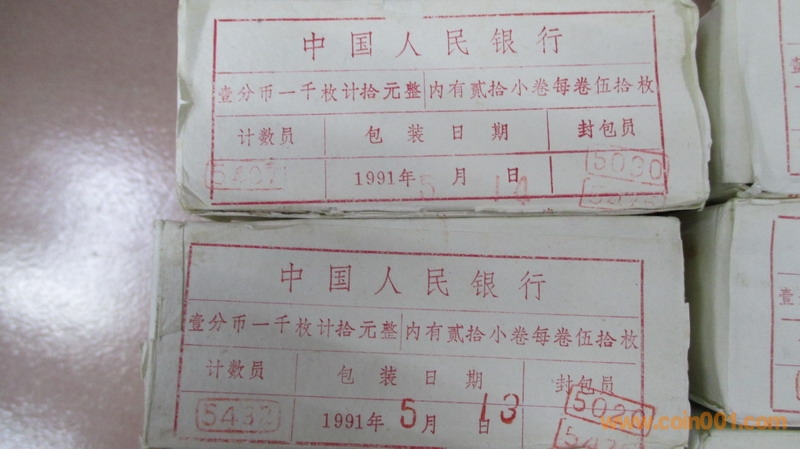 中国人民银行
壹分币一千枚计拾元整 内有贰拾小卷每卷伍拾枚
计数员 包装日期 封包员
5407 1991年5月14日 5020
中国人民银行
壹分币一千枚计拾元整 内有贰拾小卷每卷伍拾枚
计数员 包装日期 封包员
5432 1991年5月13日 5020
www.coin001.com